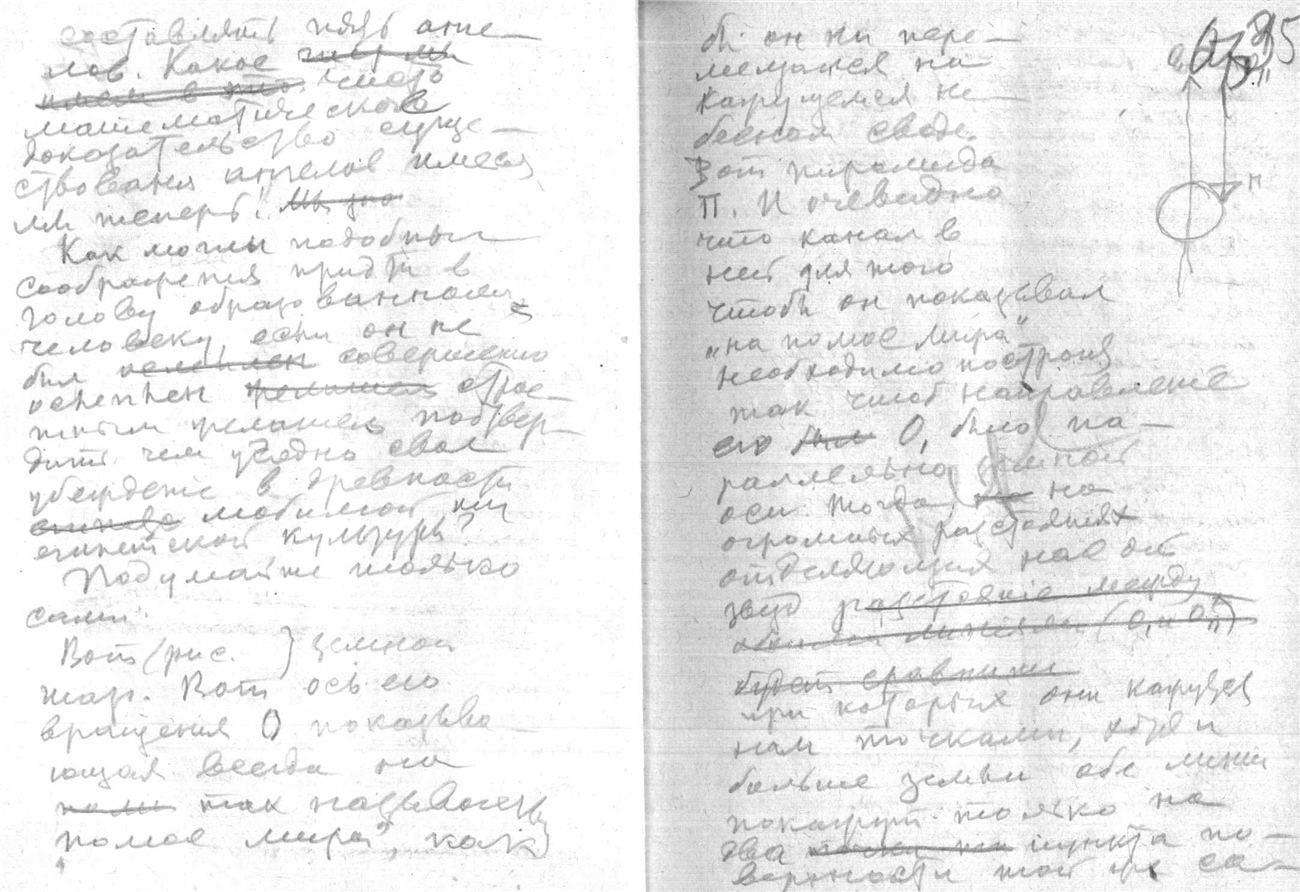 составлять пядь анге-
лов. Какое
имеем в это. чисто
математическое
доказательство суще-
ствования ангелов имеем
мы теперь! Мы зна
Как могли подобныя
соображения придти в
голову образованному
человеку, если он не
был ослеплен совершенно
ослеплен желанием страс-
тным желанием подтвер-
дить чем угодно свое
убеждение в древности
любимой им
египетской культуры?
Подумайте только
сами.
Вот (рис. ) земной
шар. Вот ось его
вращения О показыва-
ющая всегда на
полю так называемый
полюс мира", как
бы он ни пере-
мещался на
кажущемся не-
бесном своде.
Вот пирамида
П. И очевидно
что канал в
ней для того
чтобы он показывал
"на полюс мира"
необходимо построить
так чтоб направление
его было О, было па-
раллельно земной
оси. Тогда на
огромных расстояниях
отделяющих нас от
звезд расстояние между
обеими линиями (О, и О,,)
будет сравнима
при которых они кажутся
нам точками, хотя и
больше земли обе линии
покажут только на
два пункта по-
верхности той же са-
35
О,
О,,
П